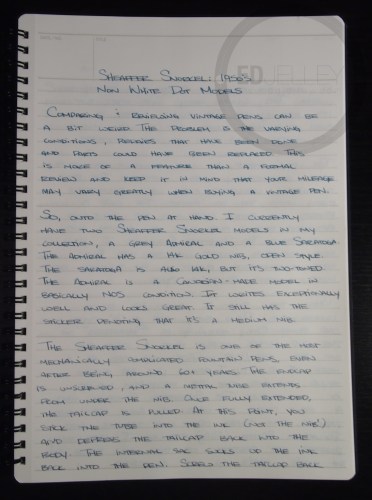 ED JELLEY
SHEAFFER SNORKEL: 1950'S
NON WHITE DOT MODELS
COMPARING & REVIEWING VINTAGE PENS CAN BE
A BIT WEIRD. THE PROBLEM IS THE VARYING
CONDITIONS, REPAIRS THAT HAVE BEEN DONE
AND PARTS COULD HAVE BEEN REPLACED. THIS
IS MORE OF A FEATURE THAN A FORMAL
REVIEW AND KEEP IT IN MIND THAT YOUR MILEAGE
MAY VARY GREATLY WHEN BUYING A VINTAGE PEN.
SO, ONTO THE PEN AT HAND. I CURRENTLY
HAVE TWO SHEAFFER SNORKEL MODELS IN MY
COLLECTION, A GREY ADMIRAL AND A BLUE SARATOGA.
THE ADMIRAL HAS A 14K GOLD NIB, OPEN STYLE.
THE SARATOGA IS ALSO 14K, BUT IT'S TWO-TONED.
THE ADMIRAL IS A CANADIAN-MADE MODEL IN
BASICALLY NOS CONDITION. IT WRITES EXCEPTIONALLY
WELL AND LOOKS GREAT. IT STILL HAS THE
STICKER DENOTING THAT IT'S A MEDIUM NIB.
THE SHEAFFER SNORKEL IS ONE OF THE MOST
MECHANICALLY COMPLICATED FOUNTAIN PENS, EVEN
AFTER BEING AROUND 60+ YEARS. THE ENDCAP
IS UNSCREWED, AND A METAL TUBE EXTENDS
FROM UNDER THE NIB. ONCE FULLY EXTENDED,
THE TAILCAP IS PULLED. AT THIS POINT, YOU
STICK THE TUBE INTO THE INK (NOT THE NIB!)
AND DEPRESS THE TAILCAP BACK INTO THE
BODY. THE INTERNAL SAC SUCKS UP THE INK
BACK INTO THE PEN. SCREW THE TAILCAP BACK